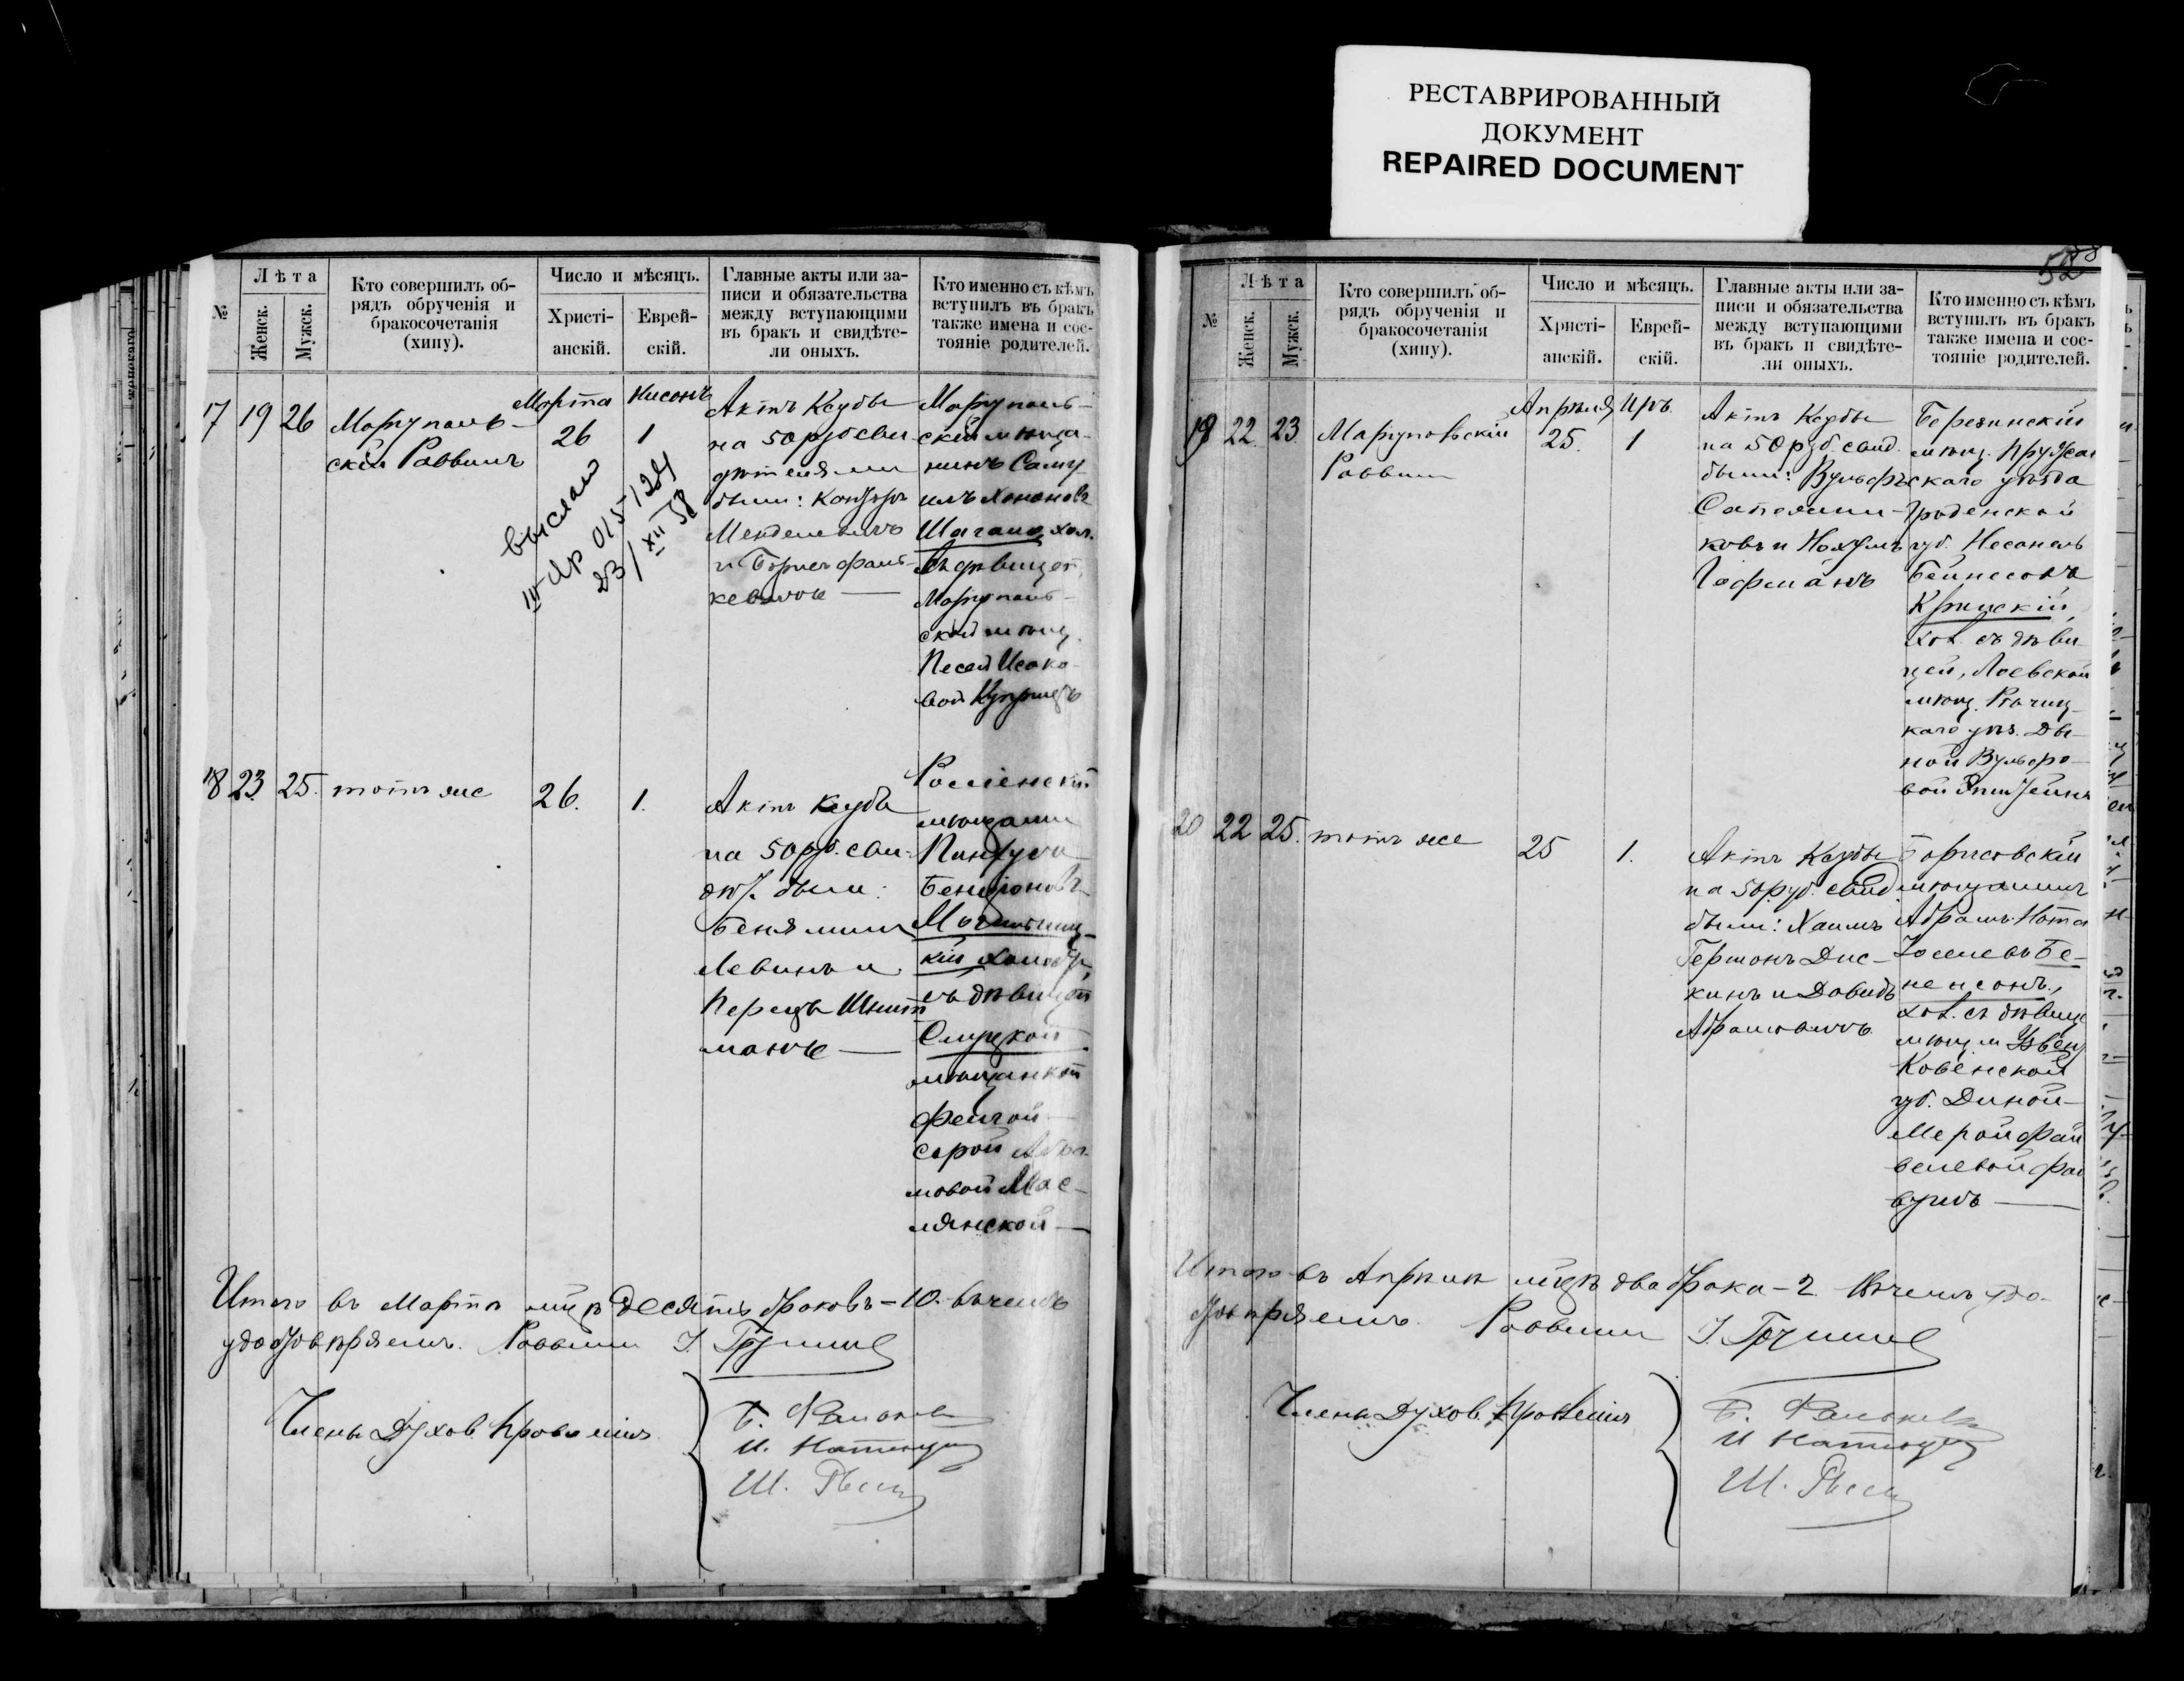 РЕСТАВРИРОВАННЫЙ
ДОКУМЕНТ
REPAIRED DOCUMENT
№
Лѣта
Женск.
Мужск.
Кто совершилъ об-
рядъ обрученія и
бракосочетанія
(хипу).
Число и мѣсяцъ.
Христі-
анскій.
Еврей-
скій.
Главные акты или за-
писи и обязательства
между вступающими
въ бракъ и свидѣте-
ли оныхъ.
Кто именно съ кѣмъ
вступилъ въ бракъ
также имена и сос-
тояніе родителей.
17 19 26
Маріуполь-
скій Раввинъ
Марта
26
Нисонъ
1
выслан
23/XII 58
Актъ Ксубы
на 50 руб сви
дѣтелями
были: Канторъ
Менделевичъ
и Борисъ Фаль-
кевичъ
Маріуполь-
скій мѣща-
нинъ Саму
илъ Хононовъ
Шагано, хол.
съ дѣвицей,
Маріуполь-
ской мѣщ.
Песей Исако-
вой
18 23 25.
тотъ же
26.
1.
Актъ Ксубы
на 50 руб. сви-
дѣт. были:
Беняминъ
Левинъ и
Перецъ Шнит
манъ
Россіенскій
мѣщанин
Пинхусъ
Бенціоновъ
Могильниц-
кій холост,
съ дѣвицей
Слуцкой
мѣщанкой
Фейгой
Сарой Абра-
мовой Мас-
лянской
Итого въ Мартѣ м-цѣ десять браковъ - 10. въ чемъ
удостовѣряемъ. Раввинъ
Члены Духов. Правленія
№
Лѣта
Женск.
Мужск.
Кто совершилъ об-
рядъ обрученія и
бракосочетанія
(хипу).
Число и мѣсяцъ.
Христі-
анскій.
Еврей-
скій.
Главные акты или за-
писи и обязательства
между вступающими
въ бракъ и свидѣте-
ли оныхъ.
Кто именно съ кѣмъ
вступилъ въ бракъ
также имена и сос-
тояніе родителей.
19 22 23
Маріупольскій
Раввинъ
Апрѣля
25.
Иръ.
1
Актъ Ксубы
на 50 руб. свид.
были: Вульфъ
Сапожни-
ковъ и Нохумъ
Гофманъ
Березинскій
мѣщ. Пружан
скаго уѣзда
Гродненской
губ. Несанель
Бейнесовъ
Кринскій,
хол. съ дѣви
цей, Лоевской
мѣщ. Рѣчиц-
каго уѣз. Ды-
ной Вульфо-
вой Эпштейнъ
20 22 25.
тотъ же
25
1.
Актъ Ксубы
на 50 руб. свид.
были: Хаимъ
Гершонъ Дис-
кинъ и Давидъ
Абрамовичъ
Борисовскій
мѣщанинъ
Абрамъ-Нота
Іоселевъ Бе-
ненсонъ,
хол. съ дѣвиц
мѣщ. м
Ковенской
губ. Диной-
Мерой Фай
велевой
Итого въ Апрѣлѣ м-цѣ два брака - 2. въ чемъ удо-
стовѣряемъ. Раввинъ
Члены Духов. Правленія